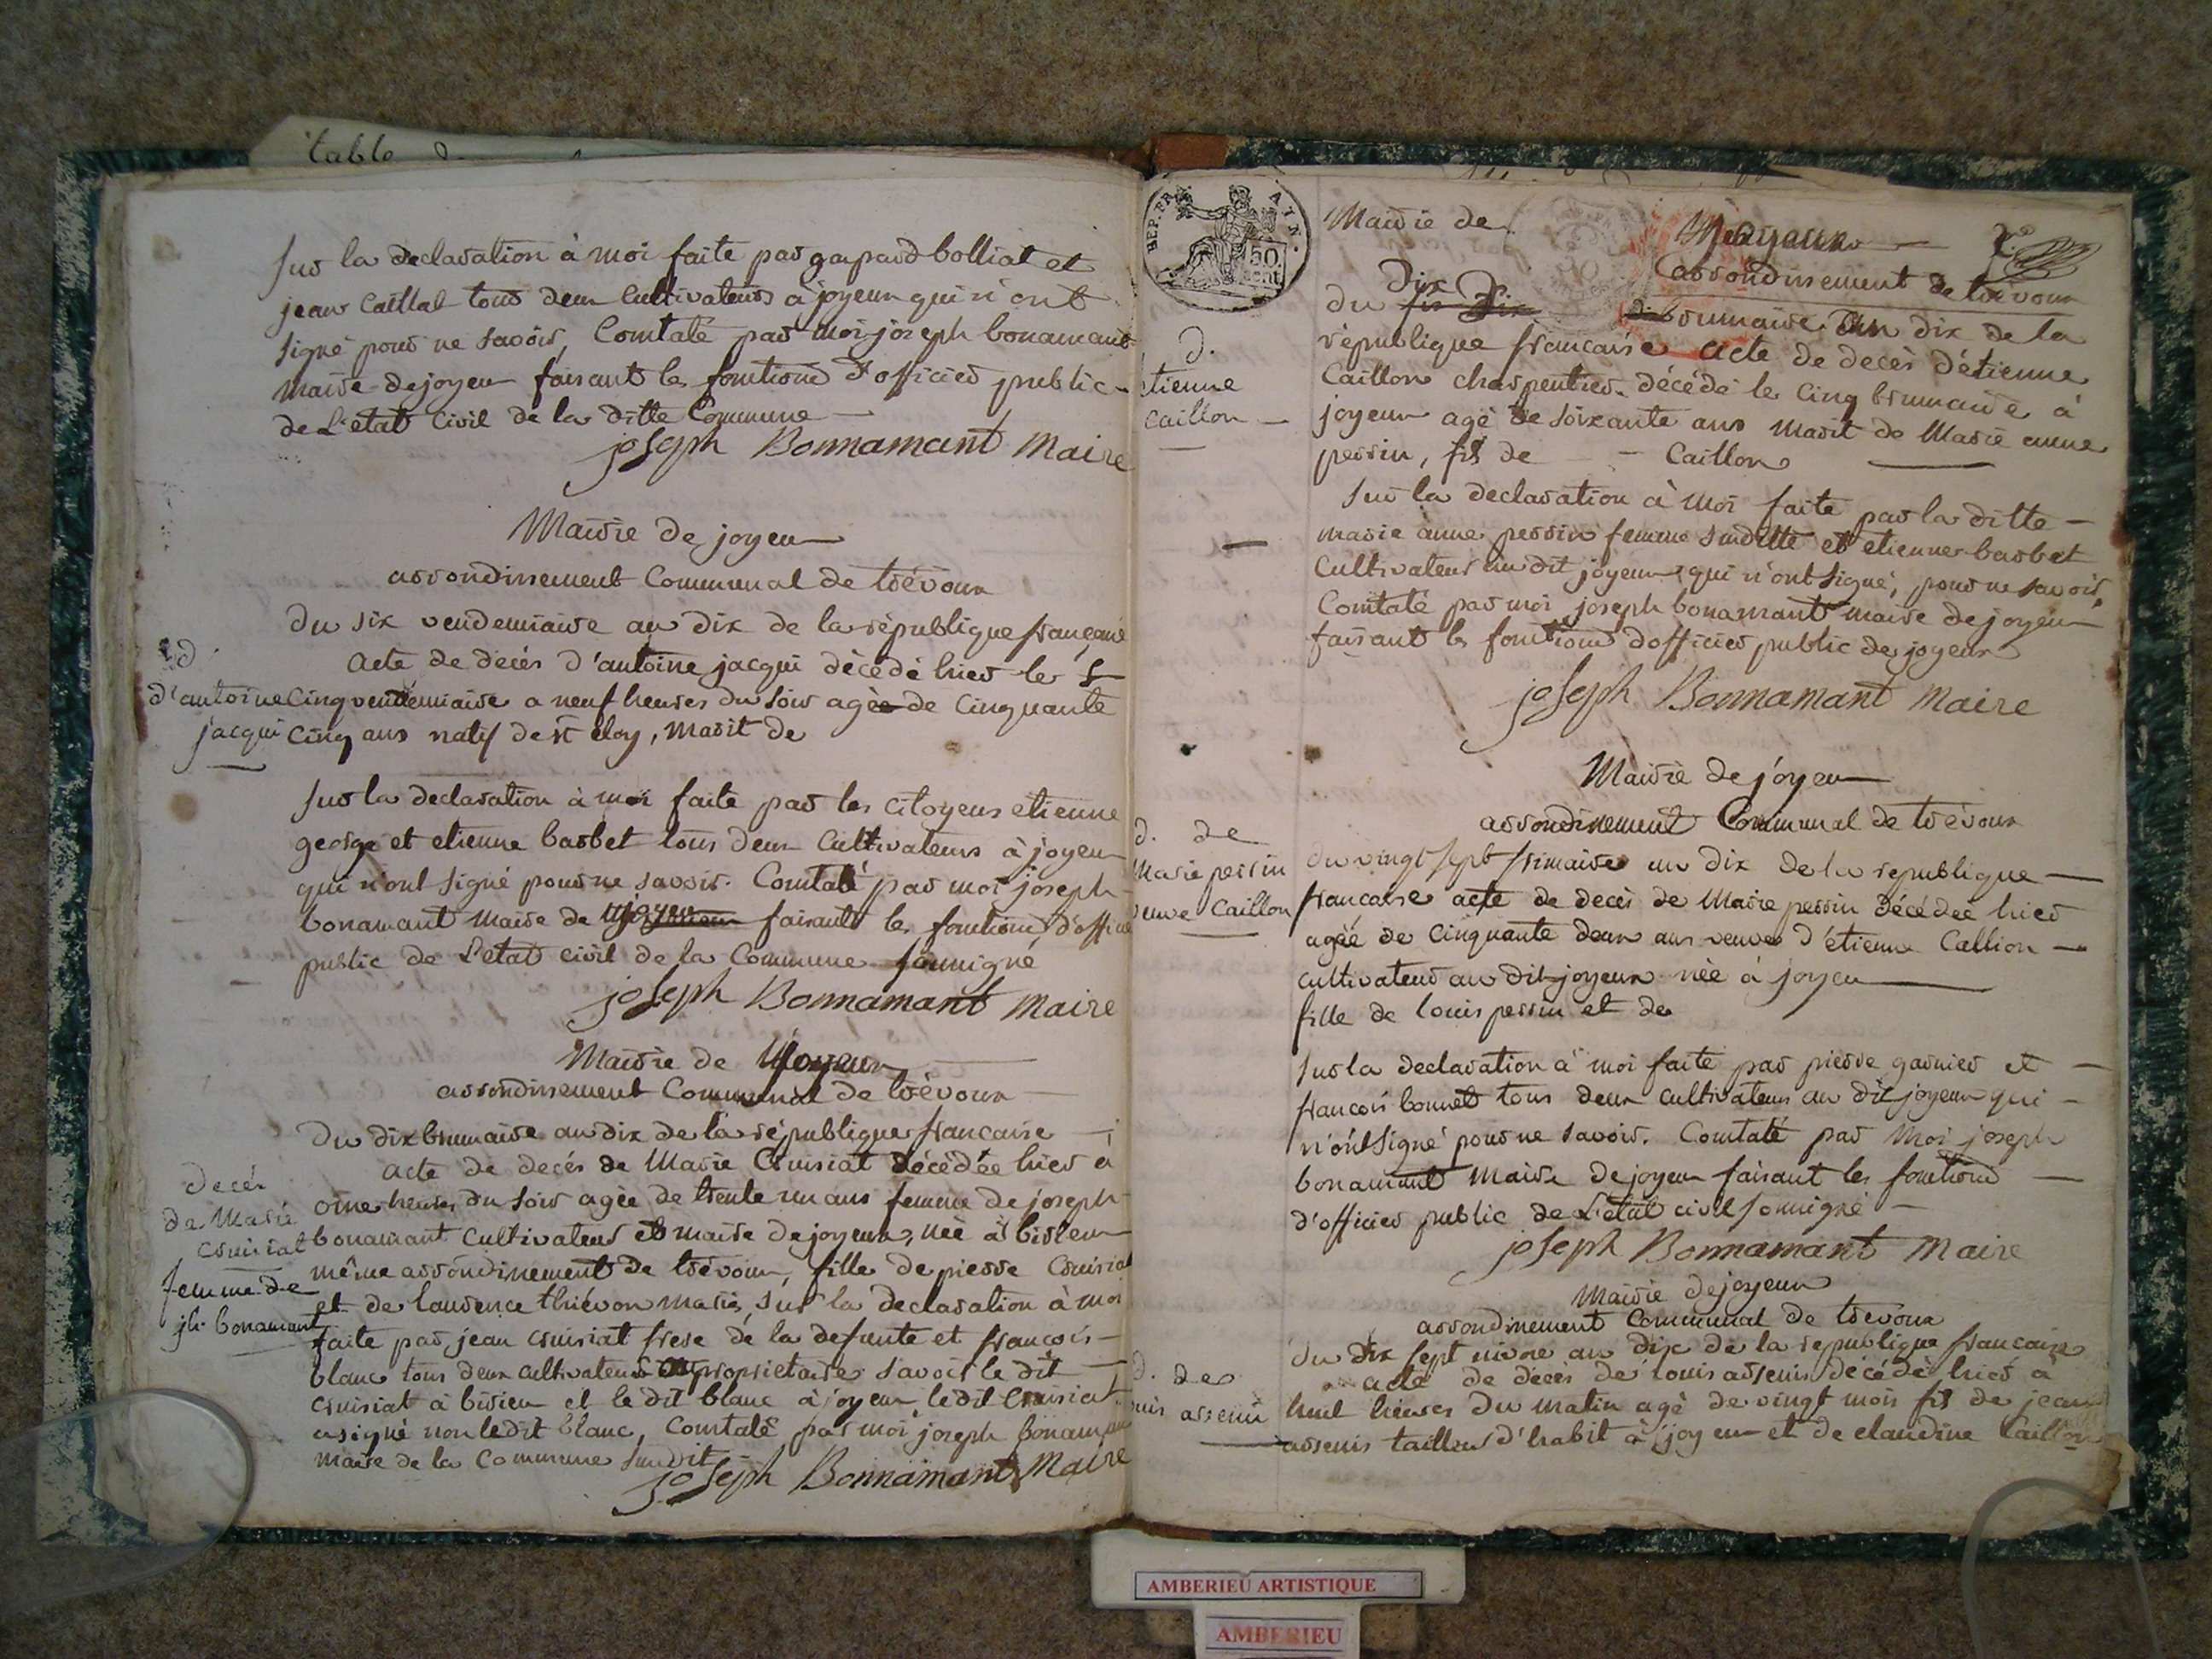 table
sur la declaration à moi faite par gaspard bolliat et
jean Caillat tous deux Cultivateurs a joyeux qui n'ont
signé pour ne savoir, Constaté par moi joseph bonamant
maire de joyeux faisant les fonctions d'officier public
de L'etat Civil de la ditte Commune
joseph Bonnamant Maire
Mairie de joyeux
arrondissement Communal de trévoux
du six vendemiaire an dix de la république française
acte de decès d'antoine jacqui décédé hier le
d.
d'antoine
jacqui
cinq vendemiaire a neuf heures du soir agée de cinquante
cinq ans natif de st eloy, marit de
sur la declaration à moi faite par les citoyens etienne
george et etienne barbet tous deux Cultivateurs à joyeux
qui n'ont signé pour ne savoir. Constaté par moi joseph
bonamant maire de joyeux faisant les fonctions d'officier
public de L'etat civil de la Commune soussigné
joseph Bonnamant Maire
Mairie de joyeux
arrondissement Communal de trévoux
du dix brumaire an dix de la république francaise
acte de decés de Marie Cruisiat décédée hier a
decés
de Marie
cruisiat
femme de
jh. bonamant
onze heures du soir agée de trente un ans femme de joseph
bonamant cultivateur et maire de joyeux, née à birieux
même arrondissement de trévoux, fille de pierre Cruisiat
et de laurence thiévon mariés, sur la declaration à moi
faite par jean cruisiat frere de la defunte et francois
blanc tous deux cultivateurs proprietaires savoir le dit
cruisiat à birieux et le dit blanc à joyeux, le dit Cruisiat
a signé non le dit blanc, Constaté par moi joseph bonamant
maire de la Commune susdit
joseph Bonnamant Maire
REP. FRA
50
cent.
ATN.
Mairie de joyeux
arrondissement de trévoux
du dix brumaire an dix de la
république francaise acte de decès d'étienne
Caillon charpentier décédé le cinq brumaire à
joyeux agé de soixante ans marit de Marie anne
perrin, fils de Caillon
d.
etienne
caillon
sur la declaration à moi faite par la ditte
marie anne perrin femme susditte et etienne barbet
Cultivateur au dit joyeux qui n'ont signé, pour ne savoir,
Constaté par moi joseph bonamant maire de joyeux
faisant les fonctions d'officier public de joyeux
joseph Bonnamant Maire
Mairie de joyeux
arrondissement Communal de trévoux
d. de
Marie perrin
veuve Caillon
du vingt sept frimaire an dix de la republique
francaise acte de decès de Marie perrin décédée hier
agée de cinquante deux ans veuve d'étienne Callion
cultivateur au dit joyeux née à joyeux
fille de louis perrin et de
sur la declaration à moi faite par pierre garnier et
francois bonnet tous deux cultivateurs au dit joyeux qui
n'ont signé pour ne savoir. Constaté par moi joseph
bonamant maire de joyeux faisant les fonctions
d'officier public de L'état civil soussigné
joseph Bonnamant Maire
Mairie de joyeux
arrondissement Communal de trévoux
du dix sept nivose an dix de la republique francaise
acte de decès de louis arsenis décédé hier à
d. de
louis arsenis
huit heures du matin agé de vingt mois fils de jean
arsenis tailleur d'habit à joyeux et de claudine Caillon
AMBERIEU ARTISTIQUE
AMBERIEU